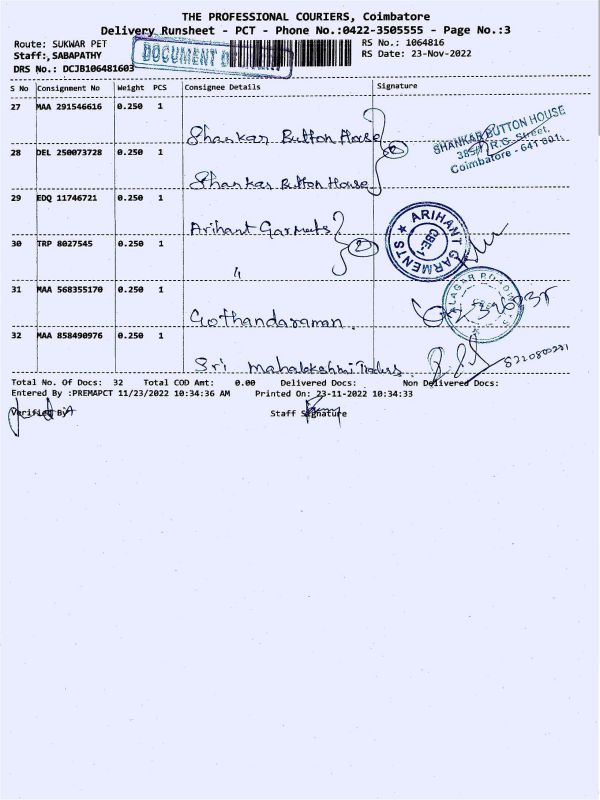 THE PROFESSIONAL COURIERS, Coimbatore
Delivery Runsheet - PCT - Phone No.:0422-3505555 - Page No.:3
Route: SUKWAR PET
RS No.: 1064816
Staff:,SABAPATHY
DOCUMENT
RS Date: 23-Nov-2022
DRS No.: DCJB106481603
S No Consignment No Weight PCS Consignee Details Signature
27 MAA 291546616 0.250 1
Shankar Button House
SHANKAR BUTTON HOUSE
Street,
Coimbatore - 641 001.
28 DEL 250073728 0.250 1
Shankar Button House
29 EDQ 11746721 0.250 1
Arihant Garments
2
ARIHANT GARMENTS
CBE-1
30 TRP 8027545 0.250 1
31 MAA 568355170 0.250 1
Gothandaraman.
32 MAA 858490976 0.250 1
Sri Mahalakshmi Traders.
Total No. Of Docs: 32 Total COD Amt: 0.00 Delivered Docs: Non Delivered Docs:
Entered By :PREMAPCT 11/23/2022 10:34:36 AM Printed On: 23-11-2022 10:34:33
Verified By
Staff Signature